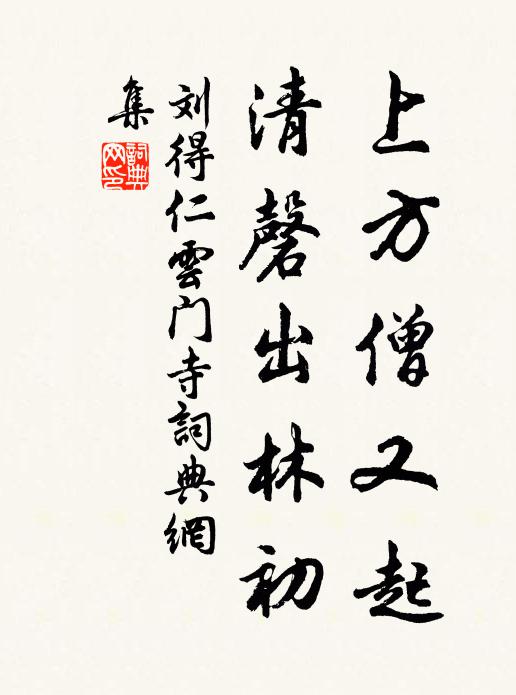 上方僧又起
清磬出林初
刘得仁雲門寺詞典網
集
詞典网印